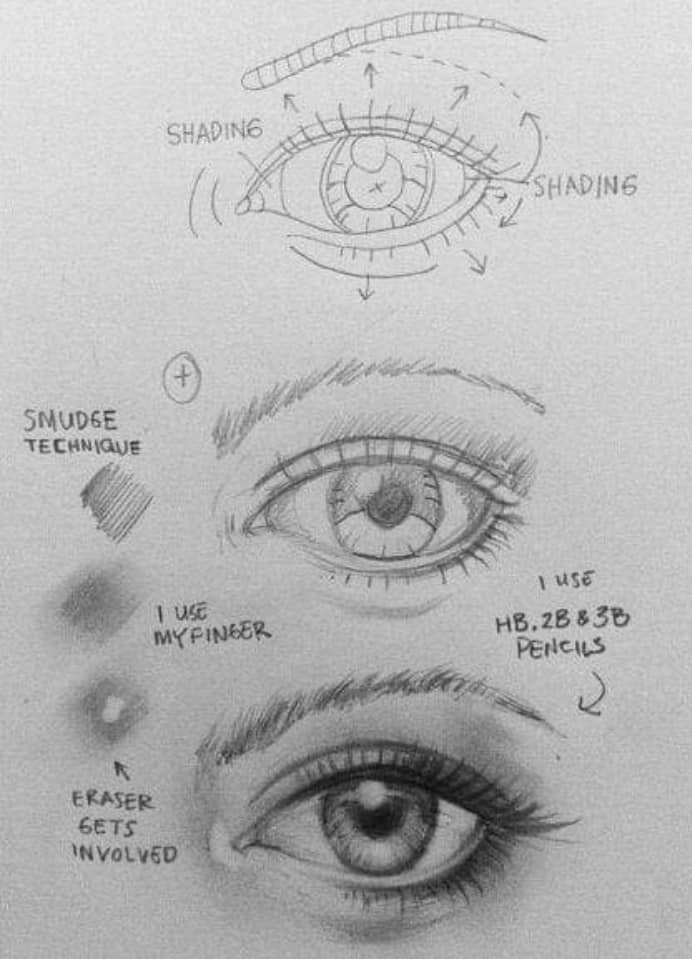 SHADING
SHADING
+
SMUDGE
TECHNIQUE
I USE
MY FINGER
I USE
HB, 2B & 3B
PENCILS
ERASER
GETS
INVOLVED